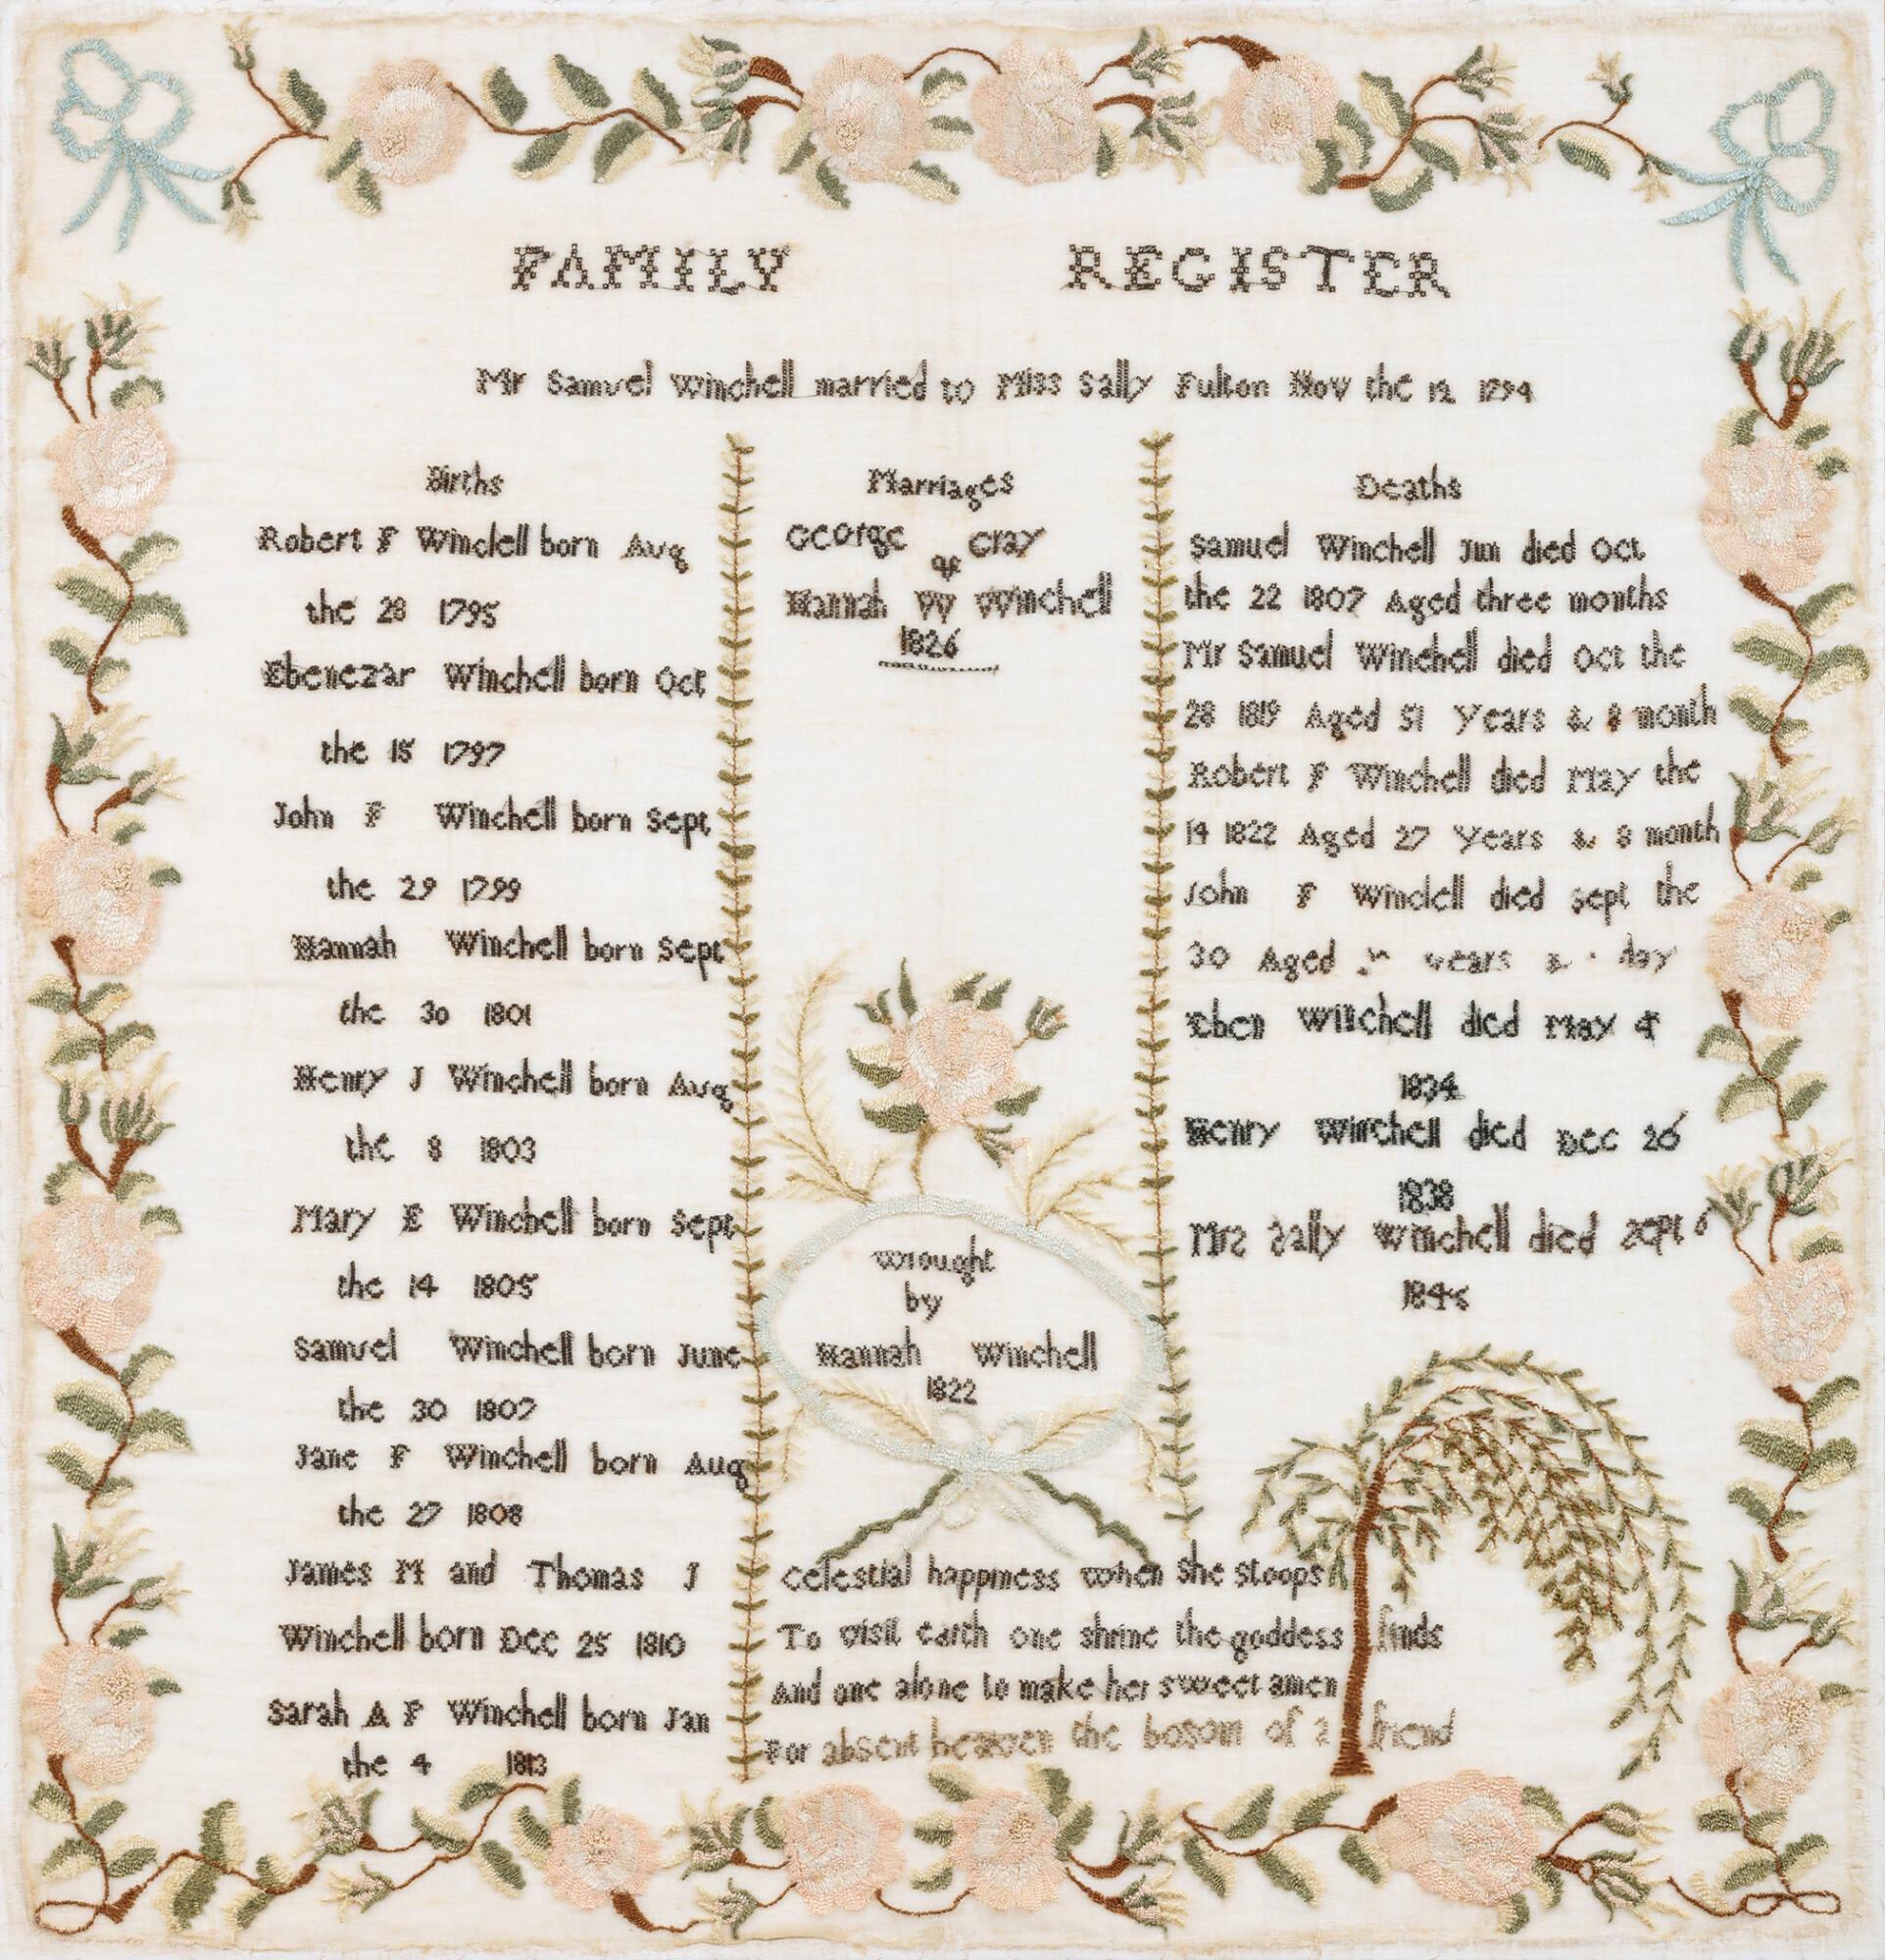 FAMILY REGISTER
Mr Samuel Winchell married to Miss Sally Fulton Nov the 12 1794
Births
Robert F Winclell born Aug
the 28 1795
Ebenezar Winchell born Oct
the 15 1797
John F Winchell born Sept
the 29 1799
Hannah Winchell born Sept
the 30 1801
Henry J Winchell born Aug
the 8 1803
Mary E Winchell born Sept
the 14 1805
Samuel Winchell born June
the 30 1807
Jane F Winchell born Aug
the 27 1808
James M and Thomas J
Winchell born Dec 25 1810
Sarah A F Winchell born Jan
the 4 1813
Marriages
George Gray
&
Hannah W Winchell
1826
Wrought
by
Hannah Winchell
1822
Deaths
Samuel Winchell Jun died Oct
the 22 1807 Aged three months
Mr Samuel Winchell died Oct the
28 1819 Aged 51 Years & 8 month
Robert F Winchell died May the
14 1822 Aged 27 Years & 8 month
John F Winclell died Sept the
30 Aged years & day
Eben Winchell died May 4
1834
Henry Winchell died Dec 26
1838
Mrs Sally Winchell died Sept 6
Celestial happiness when She Stoops
To visit earth one shrine the goddess finds
And one alone to make her sweet amen
For absent heaven the bosom of a friend